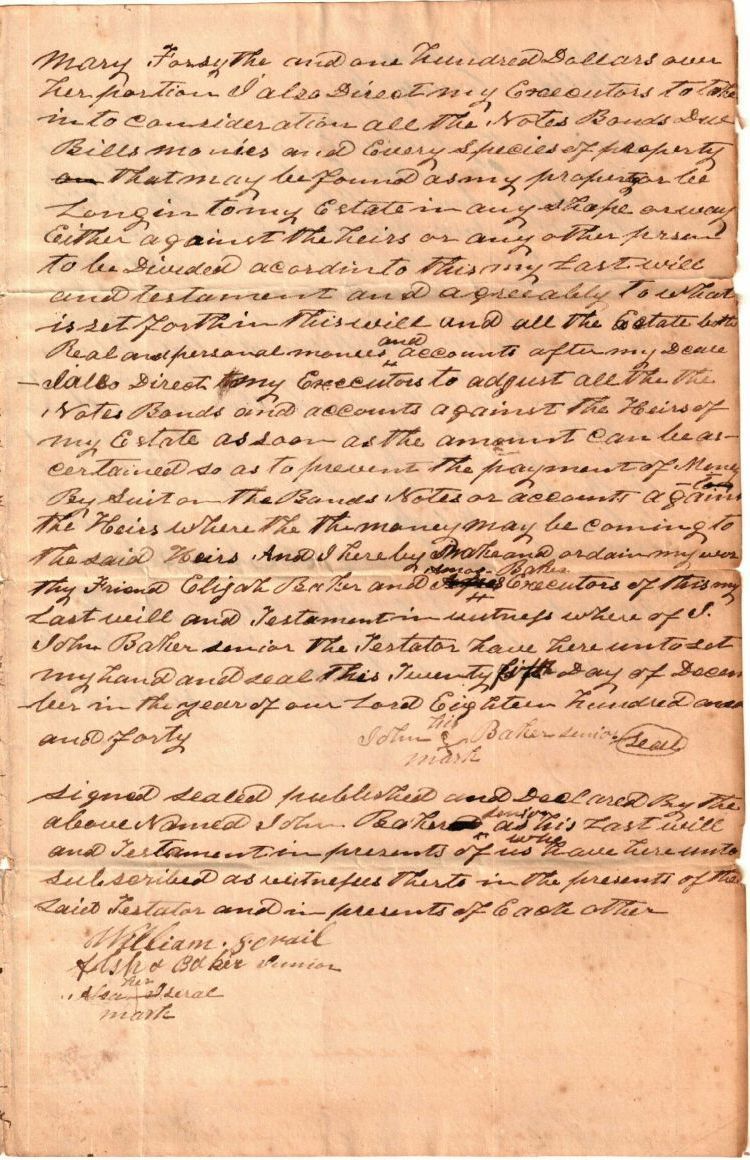 Mary Forsythe and one hundred Dollars over
her portion I also Direct my Executors to take
in to consideration all the Notes Bonds Due
Bills monies and Every Species of property
on that may be found as my property or be
Longin to my Estate in any shape or way
Either against the heirs or any other person
to be Divided acordin to this my Last will
and testament and agreeably to what
is set forth in this will and all the Estate both
Real and personal monies and accounts after my Decase
I also Direct my Executors to adjust all the the
Notes Bonds and accounts against the Heirs of
my Estate as soon as the amount can be as-
certained so as to prevent the payment of Money
By Suit on the Bonds Notes or accounts against
the Heirs where the the money may be coming to
the said Heirs And I hereby Make and ordain my wor
thy Friend Elijah Baker and Amos Baker Executors of this my
Last will and Testament in witness where of I.
John Baker senior the Testator have here unto set
my hand and seal this Twenty fifth Day of Decem
ber in the year of our Lord Eighteen hundred and
and forty
John his Baker senior seal
mark
Signed sealed published and DecLared By the
above Named John Baker senior as his Last will
and Testament in presents of us who have here unto
subscribed as witnesses therto in the presents of the
said Testator and in presents of Each other
William
Baker Junior
her
mark